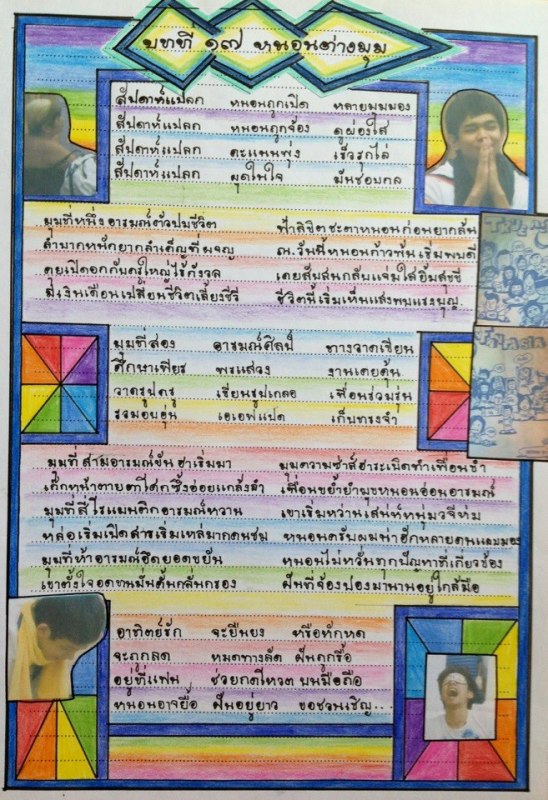 บทที่ ๑๗ หนอนต่างมุม
สัปดาห์แปลก หนอนถูกเปิด หลายมุมมอง
สัปดาห์แปลก หนอนถูกจ้อง ดูผ่องใส
สัปดาห์แปลก คะแนนพุ่ง เร็วรุกไล่
สัปดาห์แปลก ผุดในใจ มันชอบกล
มุมที่หนึ่ง อารมณ์ตัวปมชีวิต ฟ้าลิขิตชะตาหนอนก่อนยากล้น
ลำบากหนักยากลำเค็ญที่ผจญ ณ.วันนี้หนอนก้าวพ้นเริ่มพบดี
คุยเปิดอกกับครูใหญ่ไร้กังวล เคยสับสนกลับแจ่มใสอิ่มสุขขี
ส่งเงินเดือนเปลี่ยนชีวิตเลี้ยงชีวี ชีวิตนี้เริ่มเห็นแสงพบแรงบุญ
มุมที่สอง อารมณ์ศิลป์ ทางวาดเขียน
ศึกษาเพียร พรแสวง งานเคยคุ้น
วาดรูปครู เขียนรูปเกลอ เพื่อนร่วมรุ่น
รวมอบอุ่น เอเอฟแปด เก็บทรงจำ
มุมที่สามอารมณ์ขันฮาเริ่มมา มุมความซาส์ฮาระเบิดทำเพื่อนขำ
เด็กหน้าตาย ซึ้งอ่อยแกล้งดำ เพื่อนขย้ำยำมุขหนอนอ่อนอารมณ์
มุมที่สี่โรแมนติกอารมณ์หวาน เขาเริ่มหว่านเสน่ห์หนุ่ม
หล่อเริ่มเปิดสาร หนอนครับผมน่าฮักหลายคน
มุมที่ห้าอารมณ์ฮึดยอดขยัน หนอนไม่หวั่นทุกปัญหาที่เกี่ยวข้อง
เขาตั้งใจอดทนมั่นคั้นกลั่นกรอง ฝันที่จ้องปองมานานอยู่ใกล้มือ
อาทิตย์รัก จะยืนยง หรือหักหด
จะถูกลด หมดทางลัด ฝันถูกรื้อ
อยู่ที่แฟน ช่วยกดโหวต บนมือถือ
หนอนอาจยื้อ ฝันอยู่ยาว ขอชวนเชิญ..